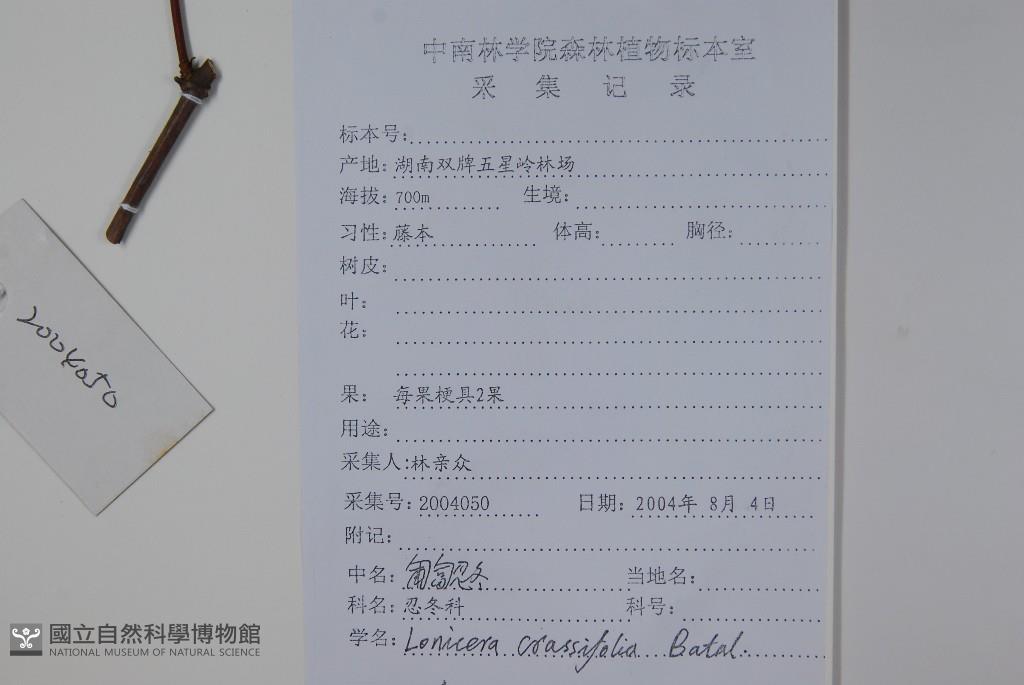 中南林学院森林植物标本室
采 集 记 录
标本号:
产地: 湖南双牌五星岭林场
海拔: 700m 生境:
习性: 藤本 体高: 胸径:
树皮:
叶:
花:
果: 每果梗具2果
用途:
采集人: 林亲众
采集号: 2004050 日期: 2004年 8月 4日
附记:
中名: 匍富忍冬 当地名:
科名: 忍冬科 科号:
学名: Lonicera crassifolia Batal.
2004050
國立自然科學博物館
NATIONAL MUSEUM OF NATURAL SCIENCE